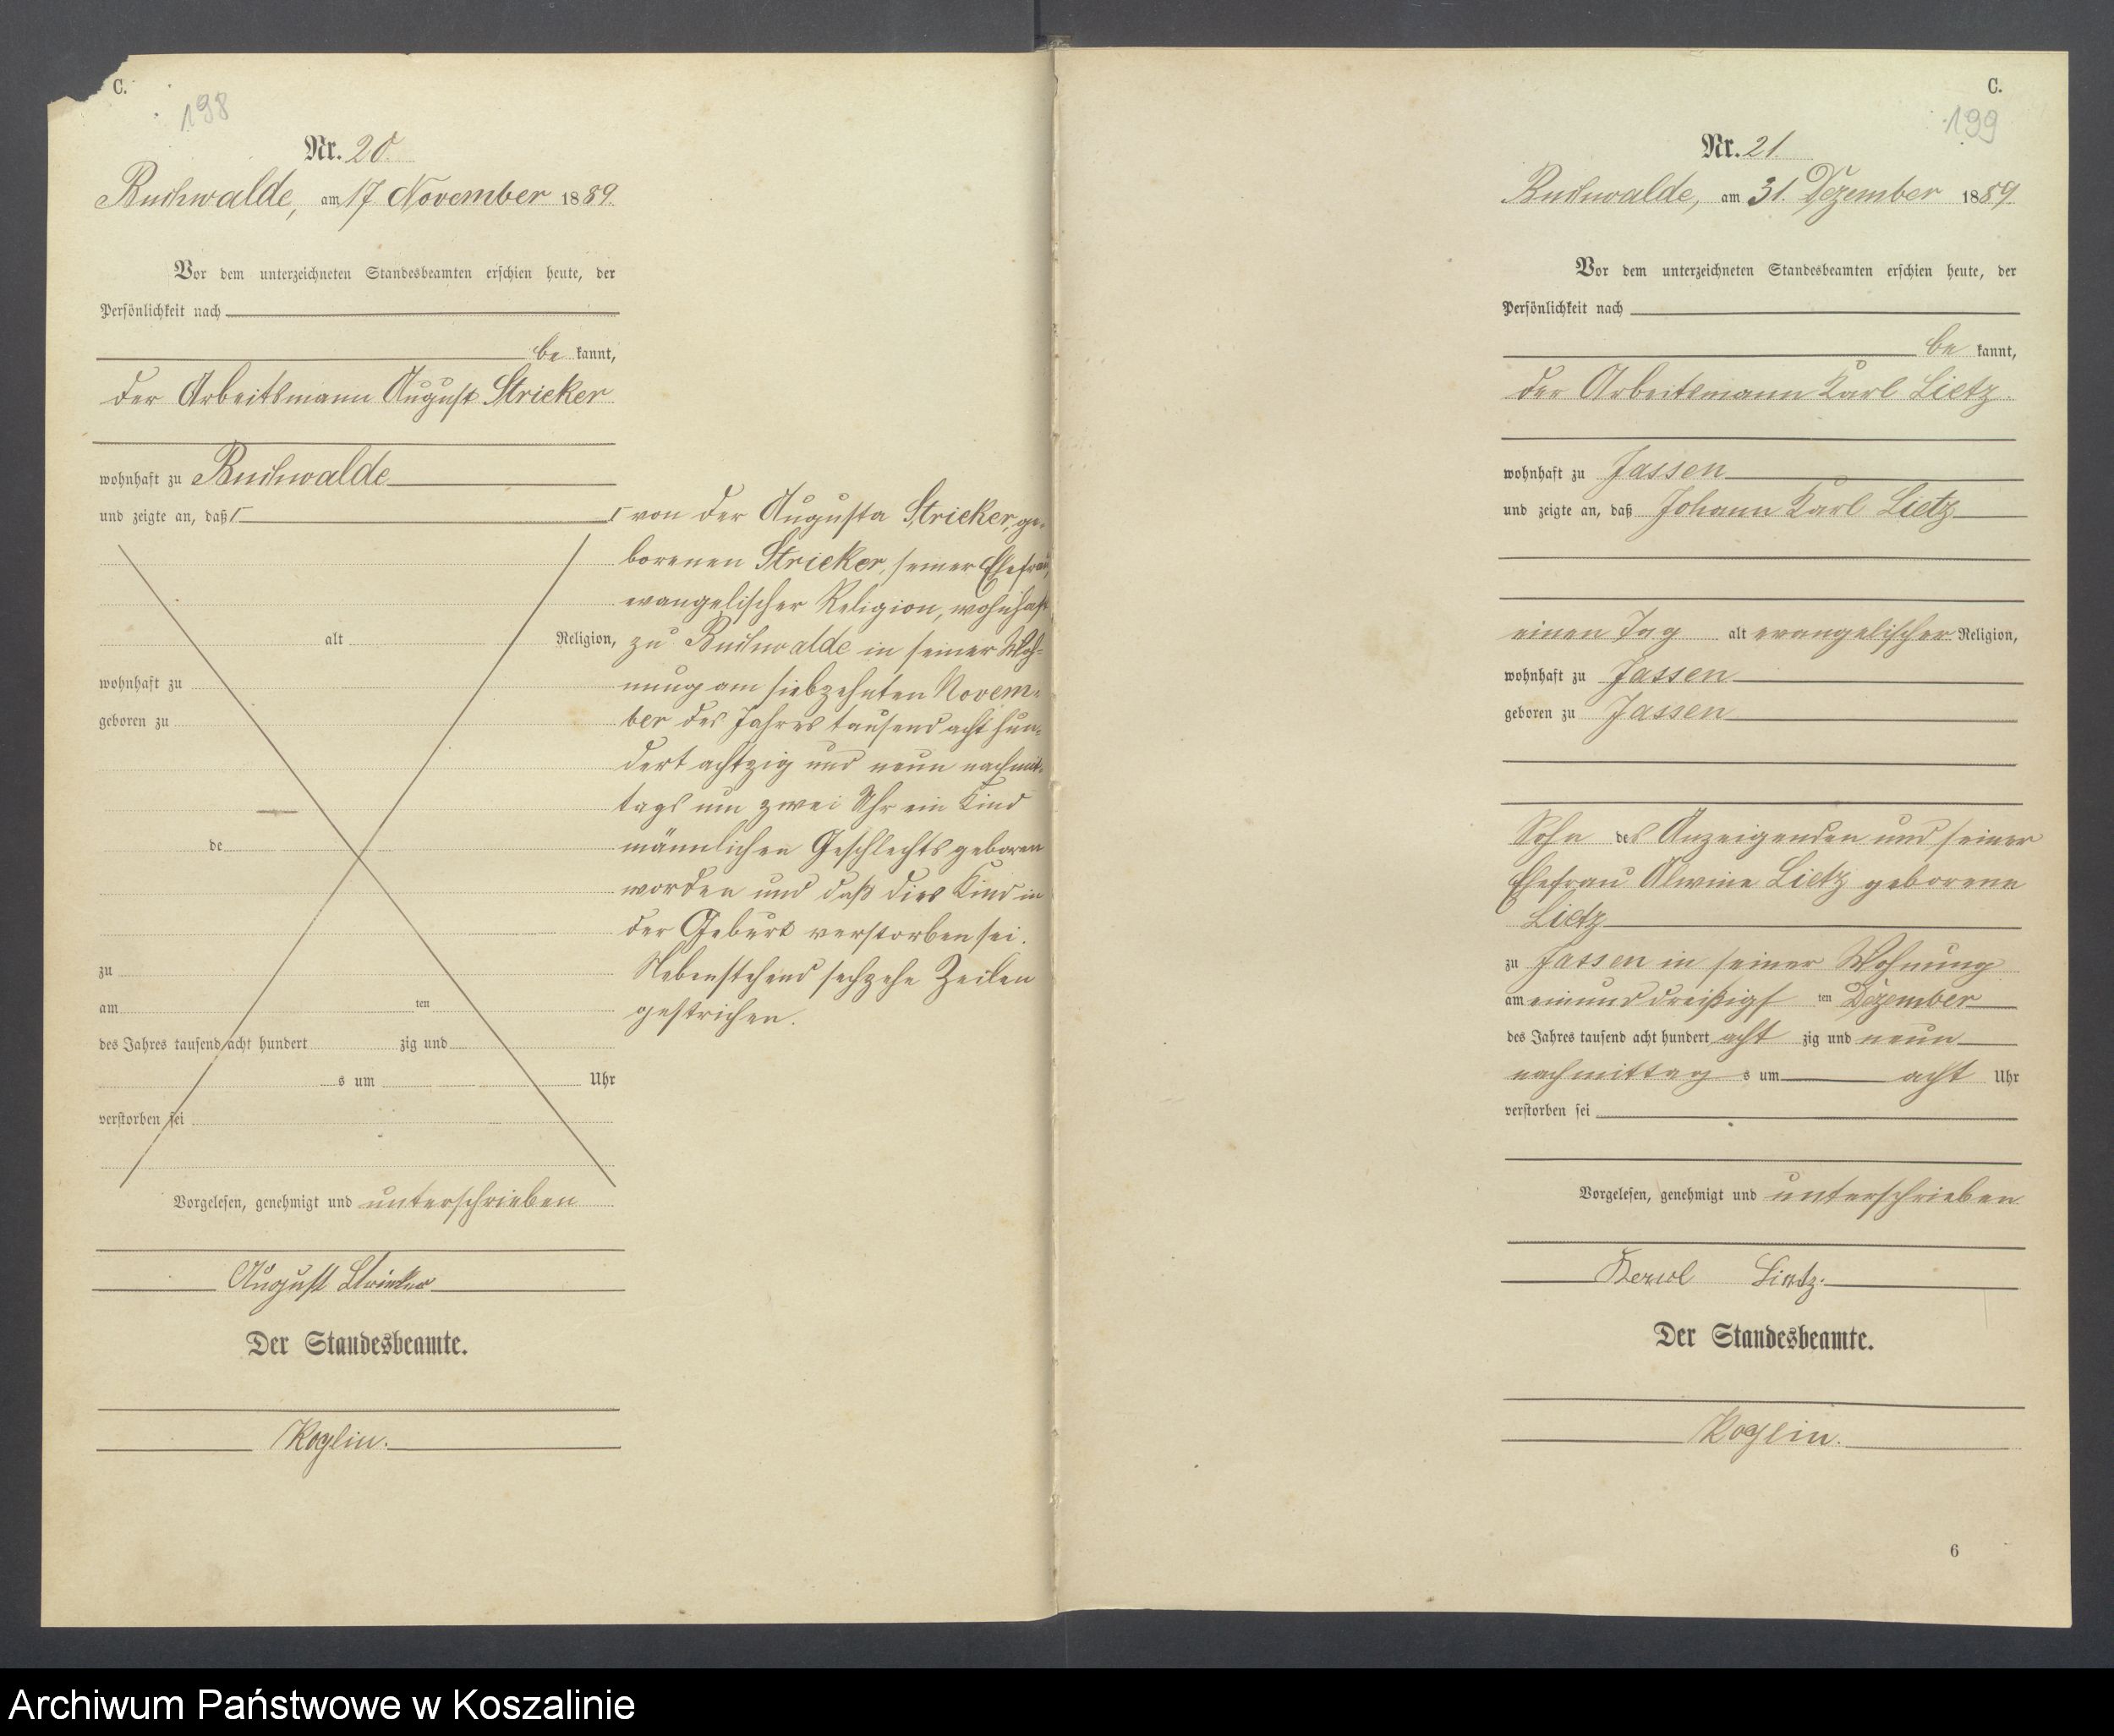 C.
198
Nr. 20.
Buchwalde, am 17 November 1889.
Vor dem unterzeichneten Standesbeamten erschien heute, der
Persönlichkeit nach
be kannt,
der Arbeitsmann August Stricker
wohnhaft zu Buchwalde
und zeigte an, daß
alt Religion,
wohnhaft zu
geboren zu
de
zu
am ten
des Jahres tausend acht hundert zig und
s um Uhr
verstorben sei
von der Augusta Stricker, ge-
borenen Stricker, seiner Ehefrau,
evangelischer Religion, wohnhaft
zu Buchwalde in seiner Woh-
nung am siebzehnten Novem-
ber des Jahres tausend acht hun-
dert achtzig und neun nachmit-
tags um zwei Uhr ein Kind
männlichen Geschlechts geboren
worden und daß dies Kind in
der Geburt verstorben sei.
Nebenstehend sechzehn Zeilen
gestrichen.
Vorgelesen, genehmigt und unterschrieben
August Stricker
Der Standesbeamte.
Koglin.
C.
199
Nr. 21.
Buchwalde, am 31. Dezember 1889.
Vor dem unterzeichneten Standesbeamten erschien heute, der
Persönlichkeit nach
be kannt,
der Arbeitsmann Karl Lietz
wohnhaft zu Jassen
und zeigte an, daß Johann Karl Lietz
einen Tag alt evangelischer Religion,
wohnhaft zu Jassen
geboren zu Jassen
Sohn des Anzeigenden und seiner
Ehefrau Alwine Lietz geborene
Lietz
zu Jassen in seiner Wohnung
am einund dreißigs ten Dezember
des Jahres tausend acht hundert acht zig und neun
nachmittag s um acht Uhr
verstorben sei
Vorgelesen, genehmigt und unterschrieben
Lietz.
Der Standesbeamte.
Koglin.
6
Archiwum Państwowe w Koszalinie